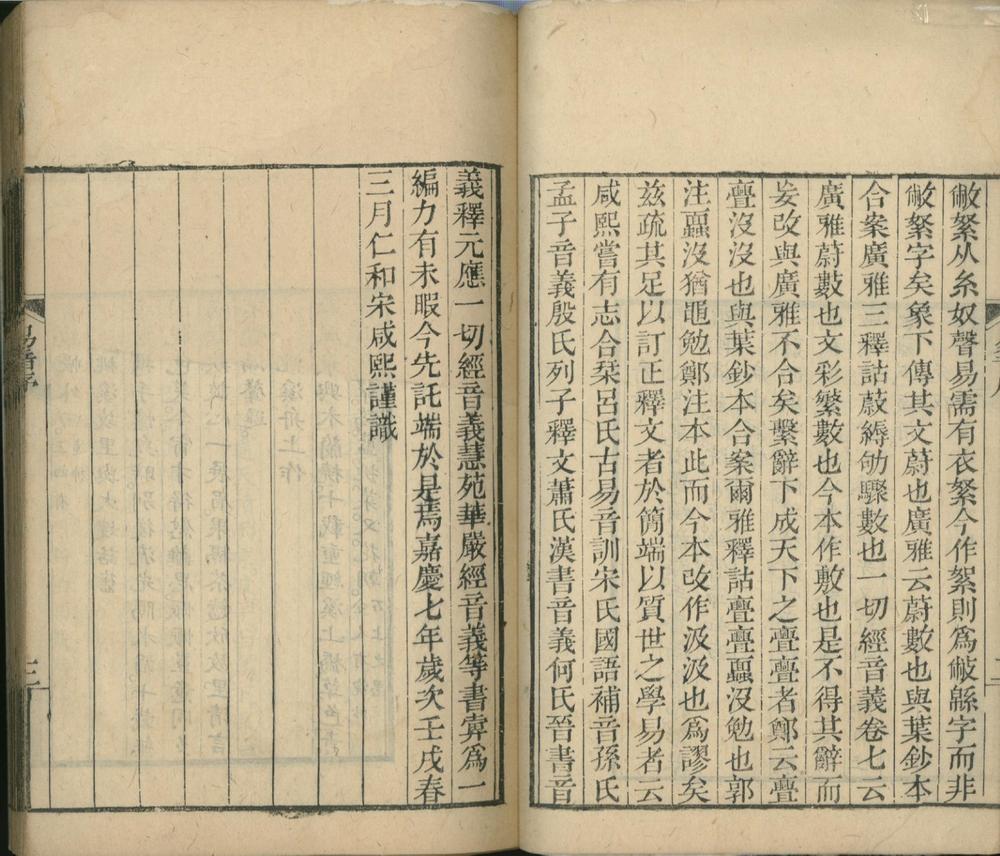 敝絮从糸奴聲易需有衣絮今作絮則爲敝緜字而非
敝絮字矣象下傳其文蔚也廣雅云蔚數也與葉鈔本
合案廣雅三釋詁蔎縟劬驟數也一切經音義卷七云
廣雅蔚數也文彩繁數也今本作敷也是不得其辭而
妄改與廣雅不合矣繫辭下成天下之亹亹者鄭云亹
亹沒沒也與葉鈔本合案爾雅釋詁亹亹蠠沒勉也郭
注蠠沒猶黽勉鄭注本此而今本改作汲汲也爲謬矣
茲疏其足以訂正釋文者於簡端以質世之學易者云
咸熙嘗有志合栞呂氏古易音訓宋氏國語補音孫氏
孟子音義殷氏列子釋文蕭氏漢書音義何氏晉書音
義釋元應一切經音義慧苑華嚴經音義等書彚爲一
編力有未暇今先託端於是焉嘉慶七年歲次壬戌春
三月仁和宋咸熙謹識
易音序
三